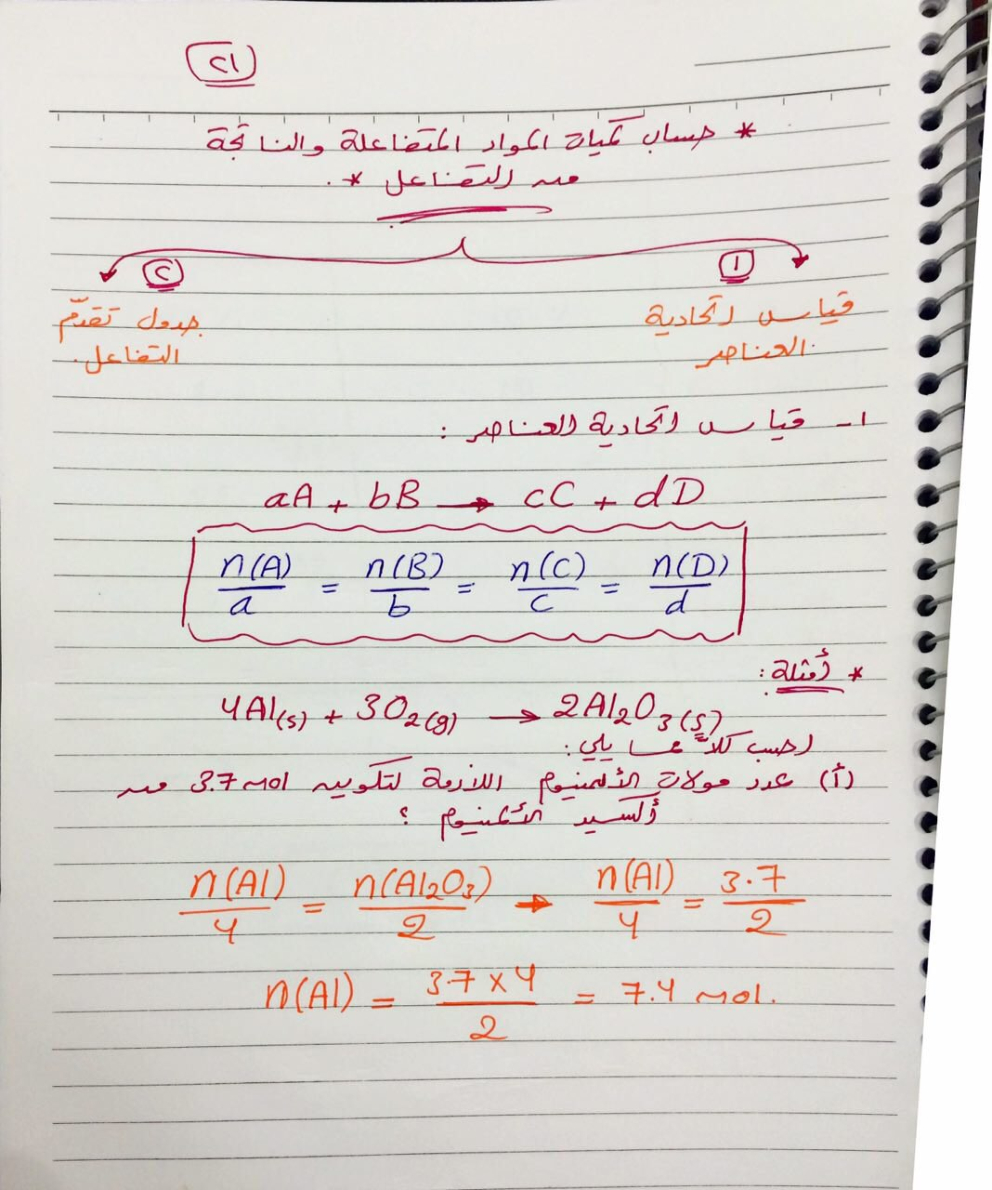 ٢١
* حساب كميات المواد المتفاعلة والناتجة
من التفاعل *.
١
٢
قياس اتحادية
العناصر.
جدول تقدّم
التفاعل.
١- قياس اتحادية العناصر :
aA + bB → cC + dD
n(A)/a = n(B)/b = n(C)/c = n(D)/d
* أمثلة :
4Al(s) + 3O2(g) → 2Al2O3(s)
احسب كلاً مما يلي :
(أ) عدد مولات الألمنيوم اللازمة لتكوين 3.7 mol من
أكسيد الألمنيوم ؟
n(Al)/4 = n(Al2O3)/2 → n(Al)/4 = 3.7/2
n(Al) = 3.7 x 4/2 = 7.4 mol.